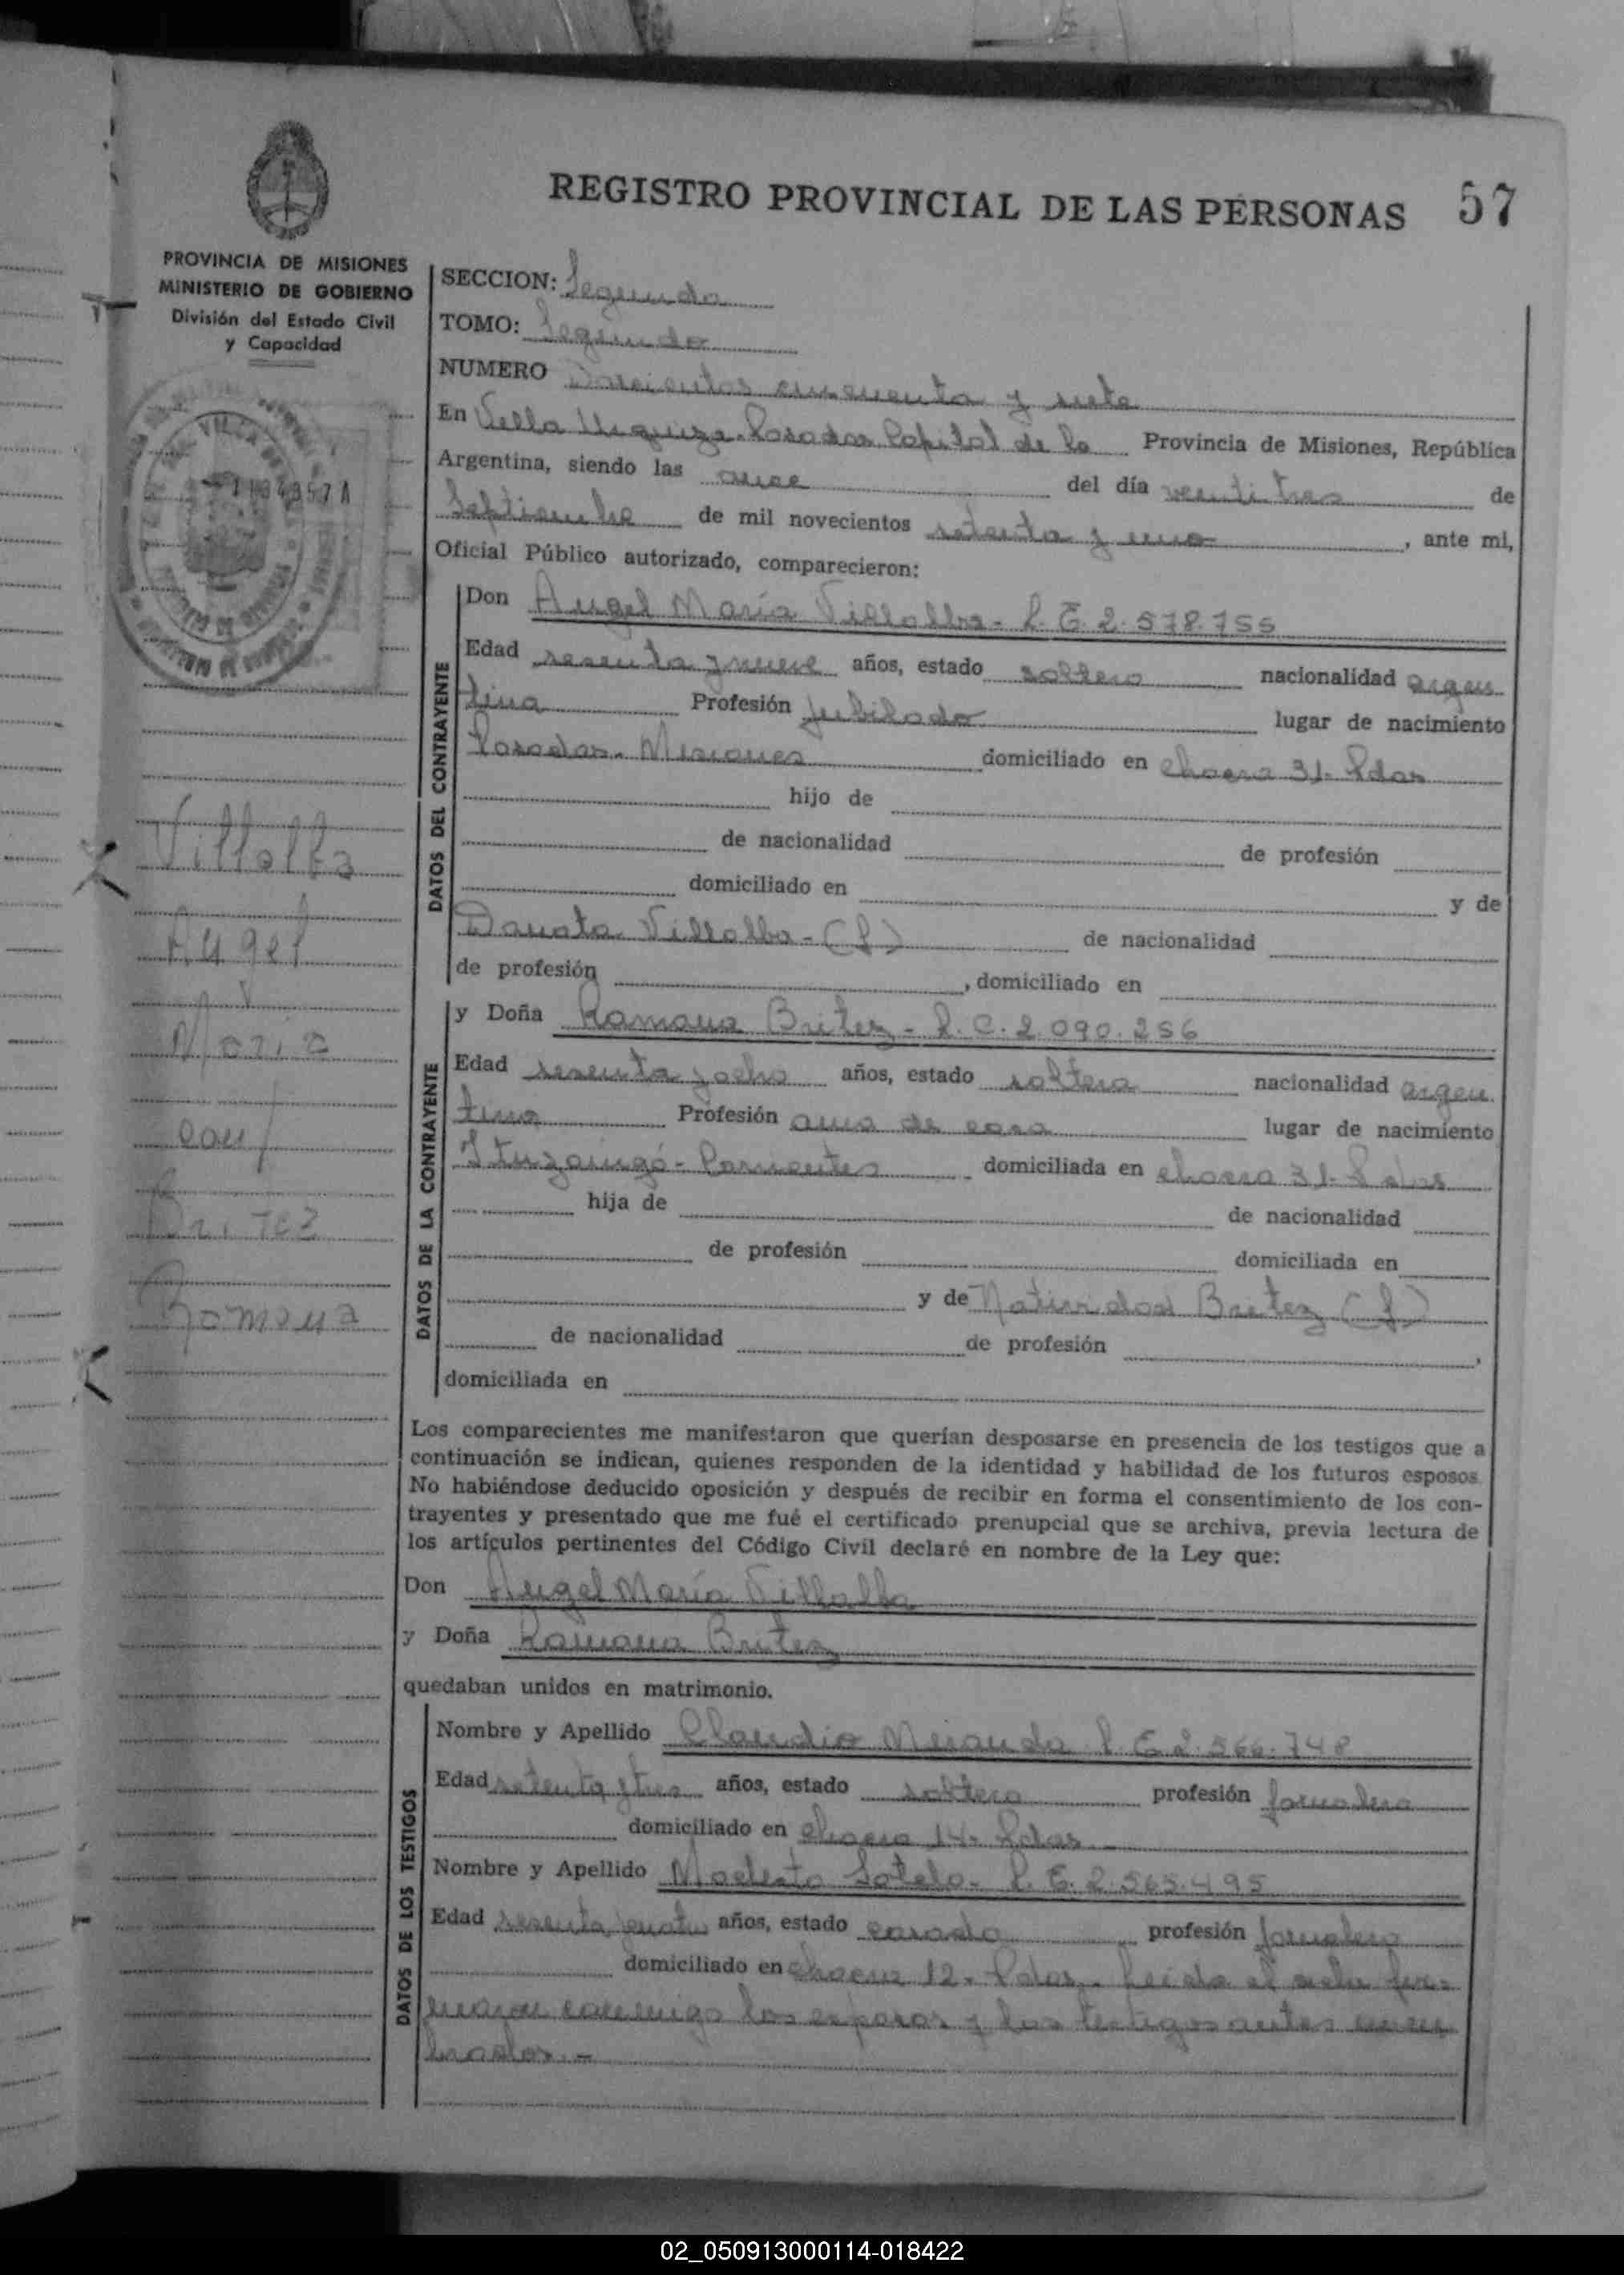 REGISTRO PROVINCIAL DE LAS PERSONAS 57
PROVINCIA DE MISIONES
MINISTERIO DE GOBIERNO
División del Estado Civil
y Capacidad
SECCION: Segunda
TOMO: Segundo
NUMERO Doscientos cincuenta y siete
En Villa Urquiza. Posadas Capital de la Provincia de Misiones, República
Argentina, siendo las once del día veintitres de
Septiembre de mil novecientos setenta y uno, ante mi,
Oficial Público autorizado, comparecieron:
DATOS DEL CONTRAYENTE
Don Angel María Villalba - L. E. 2.578.755
Edad sesenta y nueve años, estado soltero nacionalidad argen
tina Profesión Jubilado lugar de nacimiento
Posadas - Misiones domiciliado en chacra 31. Pdas
hijo de
de nacionalidad de profesión
domiciliado en y de
Donata Villalba - (f)  de nacionalidad
de profesión , domiciliado en
DATOS DE LA CONTRAYENTE
y Doña Ramona Britez - L. C. 2.090.256
Edad sesenta y ocho años, estado soltera nacionalidad argen
tina Profesión ama de casa lugar de nacimiento
Ituzaingó - Corrientes domiciliada en chacra 31. Pdas
hija de de nacionalidad
de profesión domiciliada en
y de Natividad Britez (f)
de nacionalidad de profesión ,
domiciliada en
Villalba
Angel
Maria
con/
Britez
Romona
Los comparecientes me manifestaron que querían desposarse en presencia de los testigos que a
continuación se indican, quienes responden de la identidad y habilidad de los futuros esposos.
No habiéndose deducido oposición y después de recibir en forma el consentimiento de los con-
trayentes y presentado que me fué el certificado prenupcial que se archiva, previa lectura de
los artículos pertinentes del Código Civil declaré en nombre de la Ley que:
Don Angel María Villalba
y Doña Ramona Britez
quedaban unidos en matrimonio.
DATOS DE LOS TESTIGOS
Nombre y Apellido Claudio Miranda L. E. 2.566.748
Edad setenta y tres años, estado soltero profesión jornalero
domiciliado en chacra 14. Pdas
Nombre y Apellido Modesto Sotelo - L. E. 2.565.495
Edad sesenta y cuatro años, estado casado profesión jornalero
domiciliado en chacra 12. Pdas. Leida el acta fir-
maron conmigo los esposos y los testigos antes nom
brados. -
02_050913000114-018422